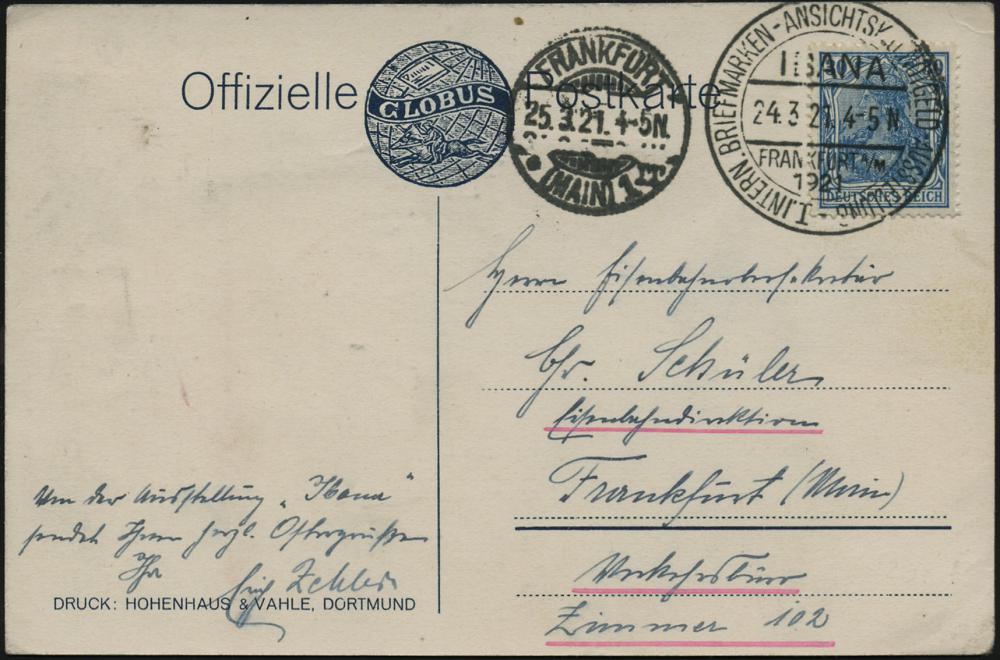 Offizielle Postkarte
GLOBUS
FRANKFURT
25.3.21. 4-5N.
(MAIN) 1
I. INTERN. BRIEFMARKEN-ANSICHTSK. U. NOTGELD-AUSSTELLUNG
IBANA
24.3.21. 4-5 N
FRANKFURT a/M
1921
DEUTSCHES REICH
Herrn Eisenbahnobersekretär
Chr. Schüler
Eisenbahndirektion
Frankfurt (Main)
Verkehrsbüro
Zimmer 102
Von der Ausstellung „Ibana“
sendet Ihnen herzl. Ostergrüße
Ihr
Erich
DRUCK: HOHENHAUS & VAHLE, DORTMUND